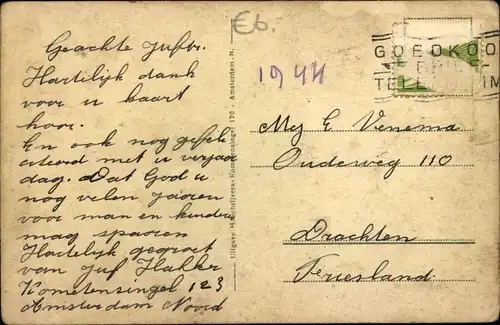 €6.-
1944
GOEDKOO
TELE
Geachte Juffr.
Hartelijk dank
voor u kaart
hoor.
En ook nog gefeli
citeerd met u verjaar
dag. Dat God u
nog velen jaaren
voor man en kinder
mag spaaren
Hartelijk gegroet
van Juf Hakker
Kometensingel 123
Amsterdam Noord
170 - Amsterdam-N.
Mej E Venema
Oudeweg 110
Drachten
Friesland.